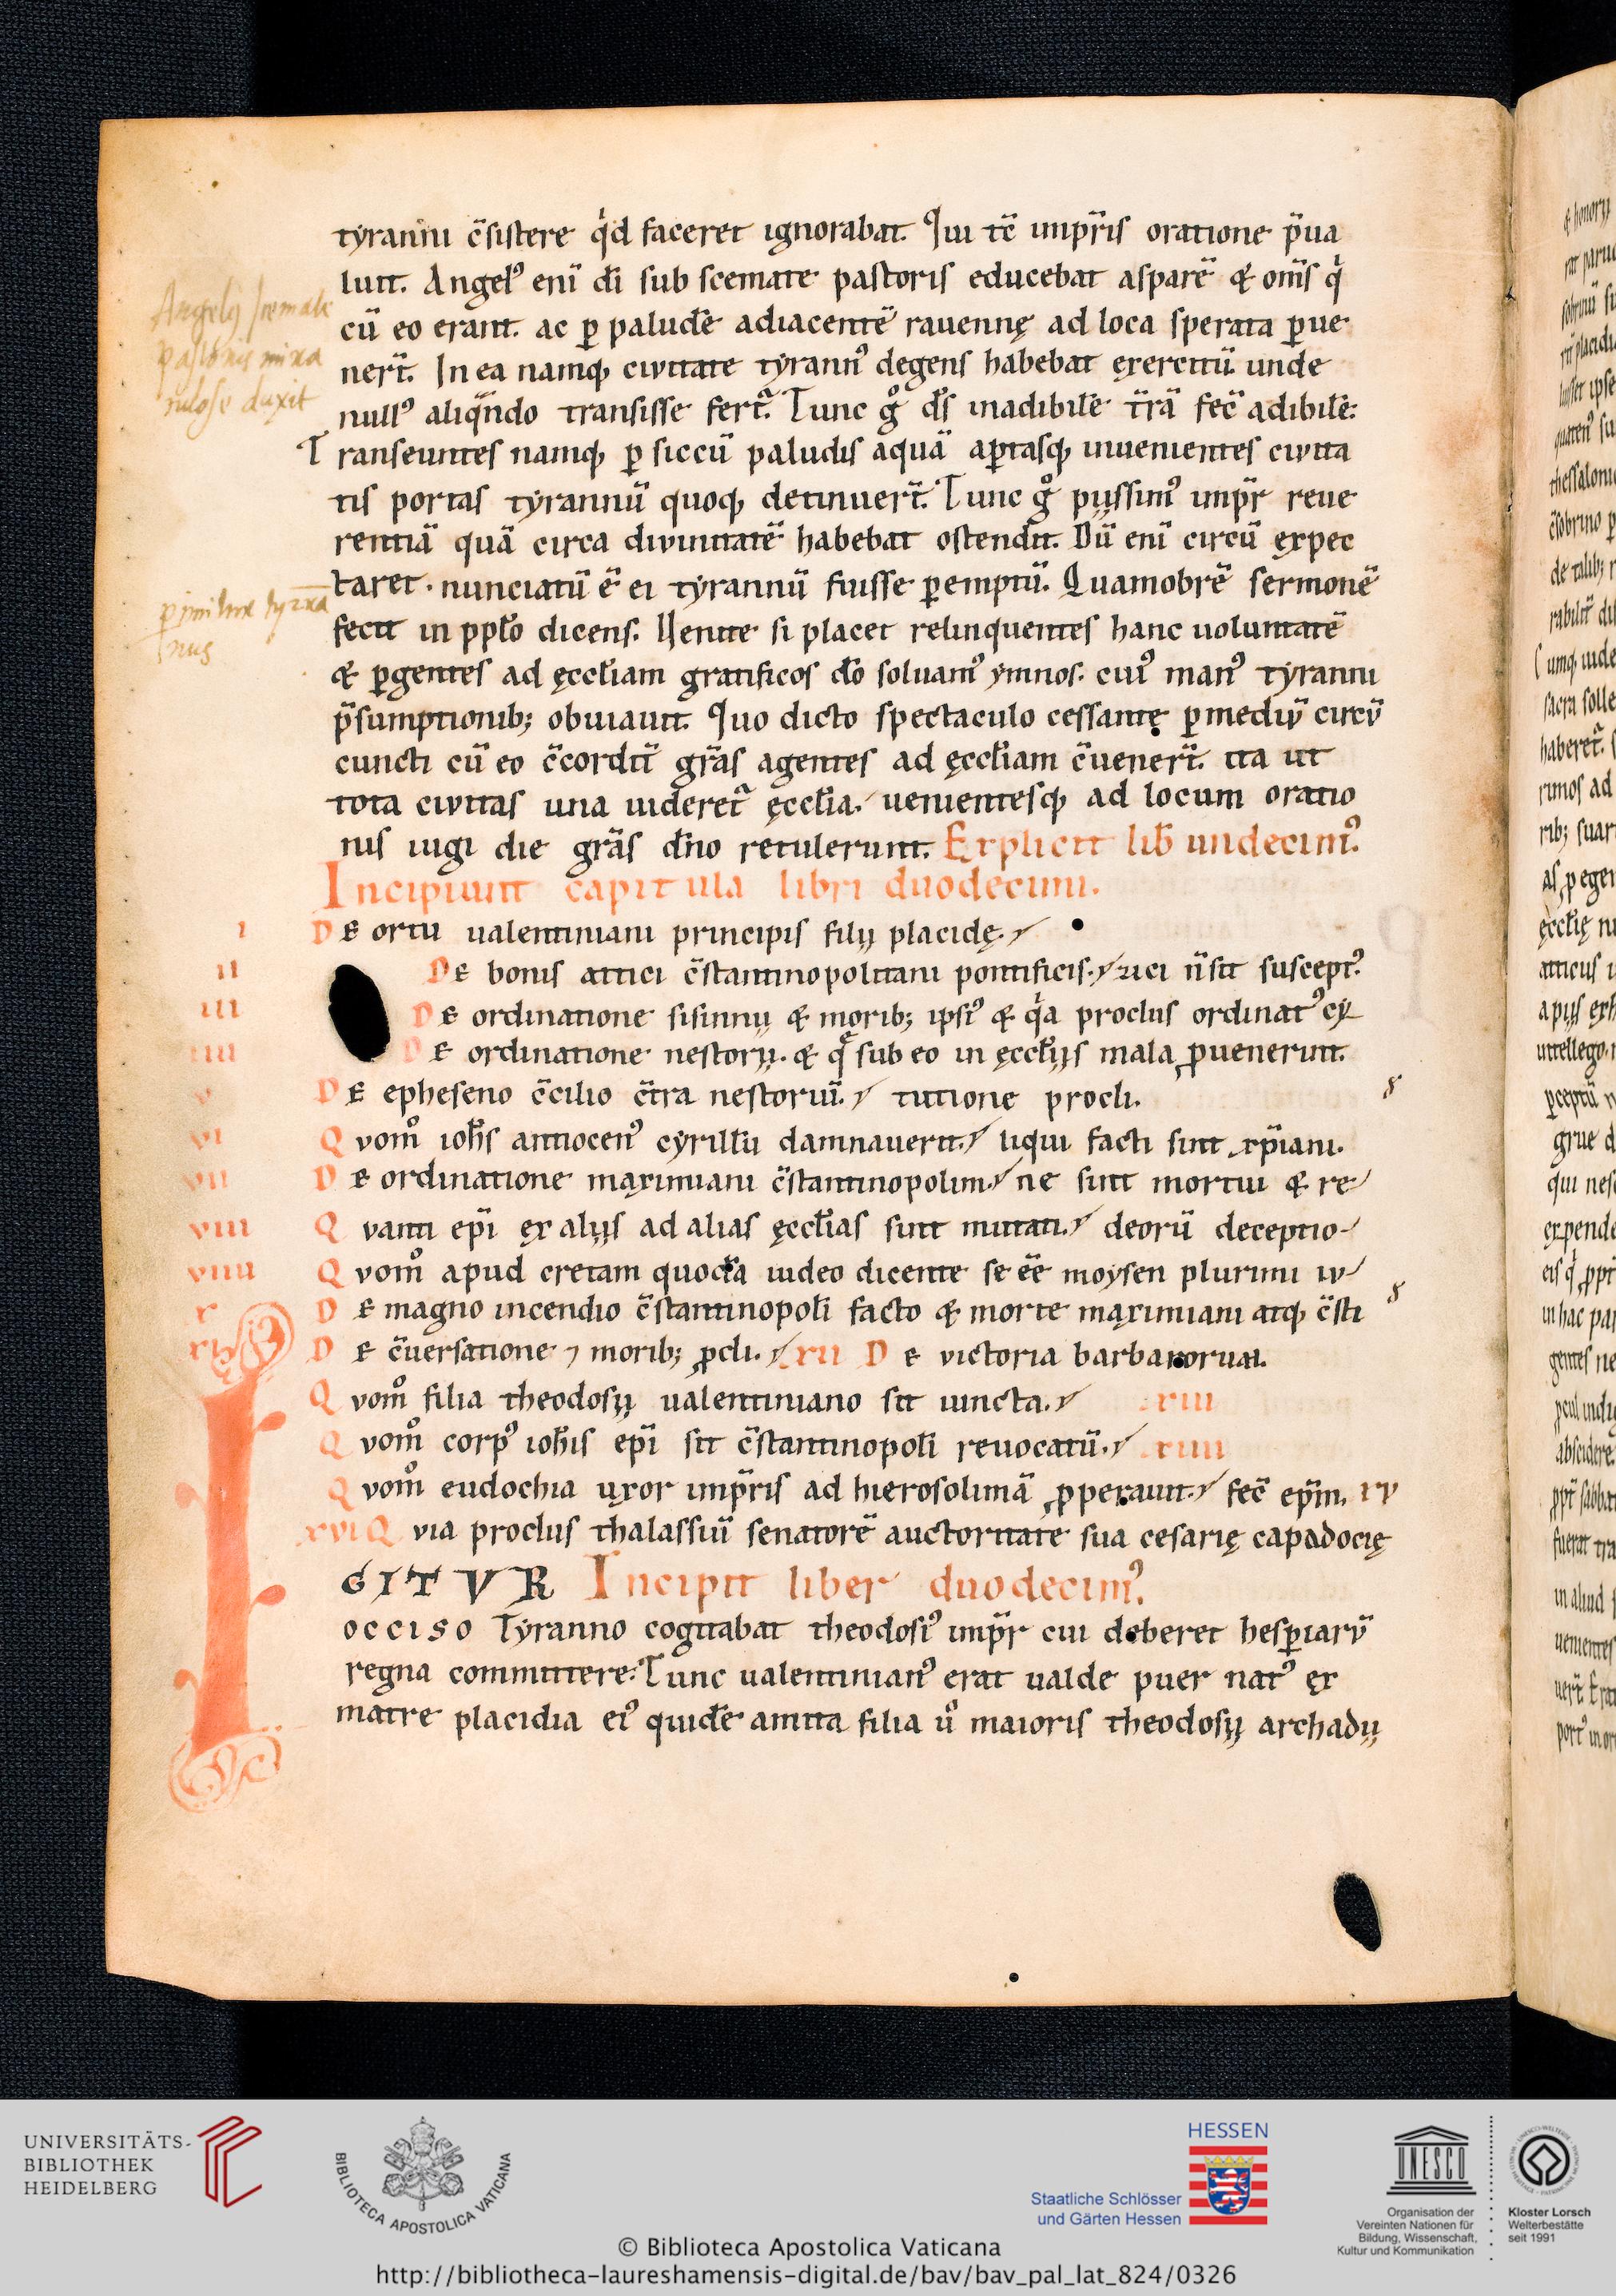 tyranni c̄sistere qͥd faceret ignorabat. Qui tc̄ imp̄ris oratione p̄ua
luit. Angelꝰ eni̅ dī sub scemate pastoris educebat asparē & om̄s qͥ
cū eo erant. ac ꝑ paludē adiacentē rauennę ad loca sperata ꝑue
ner̄t. In ea namq; civitate tyrannꝰ degens habebat exercitū unde
nullꝰ aliqͣndo transisse fertᷣ. Tunc gͦ ds̄ inadibilē tr̄ā fec̄ adibilē:
Transeuntes namq; ꝑ siccū paludis aquā aꝑtasq; inuenientes civita
tis portas tyrannū quoq; detinuer̄t. Tunc gͦ piissimꝰ imp̄r reue
rentiā quā circa divinitatē habebat ostendit. Dū enī circū expec
taret. nunciatū ē ei tyrannū fuisse ꝑemptū. Quamobrē sermonē
fecit in pplo̅ dicens. Uenite si placet relinquentes hanc uoluntatē
& ꝑgentes ad ęccl̄iam gratificos dō soluamꝰ ymnos. cuiꝰ manꝰ tyranni
p̄sumptionib; obuiauit. Quo dicto spectaculo cessante ꝑ mediū circū
cuncti cū eo c̄corditᷣ grās agentes ad ęccl̄iam c̄uener̄t. ita ut
tota civitas una uideretᷣ ęccl̄ia. uenientesq; ad locum oratio
nis iugi die grās dn̄o retulerunt. Explicit lib̄ undecimꝰ.
Incipiunt capitula libri duodecimi.
i De ortu ualentiniani principis filii placidę.
ii De bonis attici c̄stantinopolitani pontificis. zici n̄ sit susceptꝰ.
iii De ordinatione sisinnii & morib; ipsiꝰ & qͥa proclus ordinatꝰ cy
iiii De ordinatione nestorii. & q̄ sub eo in ęccl̄iis mala ꝓuenerint.
v De epheseno c̄cilio c̄tra nestoriū. titutione procli.
vi Qvomͦ ioh̄s antiocenꝰ cyrillū damnauerit. liqui facti sint xp̄iani.
vii De ordinatione maximiani c̄stantinopolim. ne sint mortui & re
viii Qvanti ep̄i ex aliis ad alias ęccl̄ias sint mutati. deorū deceptio
viiii Qvomͦ apud cretam quodā iudeo dicente se eē moysen plurimi iv
x De magno incendio c̄stantinopoli facto & morte maximiani atq; c̄sti
xi De c̄uersatione ⁊ morib; ꝓcli. xii De victoria barbarorum.
Qvomͦ filia theodosii ualentiniano sit iuncta. xiii
Qvomͦ corpꝰ ioh̄is ep̄i sit c̄stantinopoli reuocatū. xiiii
Qvomͦ eudochia uxor imp̄ris ad hierosolimā ꝓperauit. fec̄ ep̄m. xv
xvi Qvia proclus thalassiū senatorē auctoritate sua cesarię capadocię
IGITVR Incipit liber duodecimꝰ.
occiso Tyranno cogitabat theodosiꝰ imp̄r cui deberet hesꝑiarū
regna committere. Tunc ualentinianꝰ erat ualde puer natꝰ ex
matre placidia eiꝰ quidē amita filia uͦ maioris theodosii archadii
Angelus scemate
pastoris mira
culose duxit
UNIVERSITÄTS-
BIBLIOTHEK
HEIDELBERG
BIBLIOTECA APOSTOLICA VATICANA
HESSEN
Staatliche Schlösser
und Gärten Hessen
UNESCO
Organisation der
Vereinten Nationen für
Bildung, Wissenschaft,
Kultur und Kommunikation
Kloster Lorsch
Welterbestätte
seit 1991
© Biblioteca Apostolica Vaticana
http://bibliotheca-laureshamensis-digital.de/bav/bav_pal_lat_824/0326